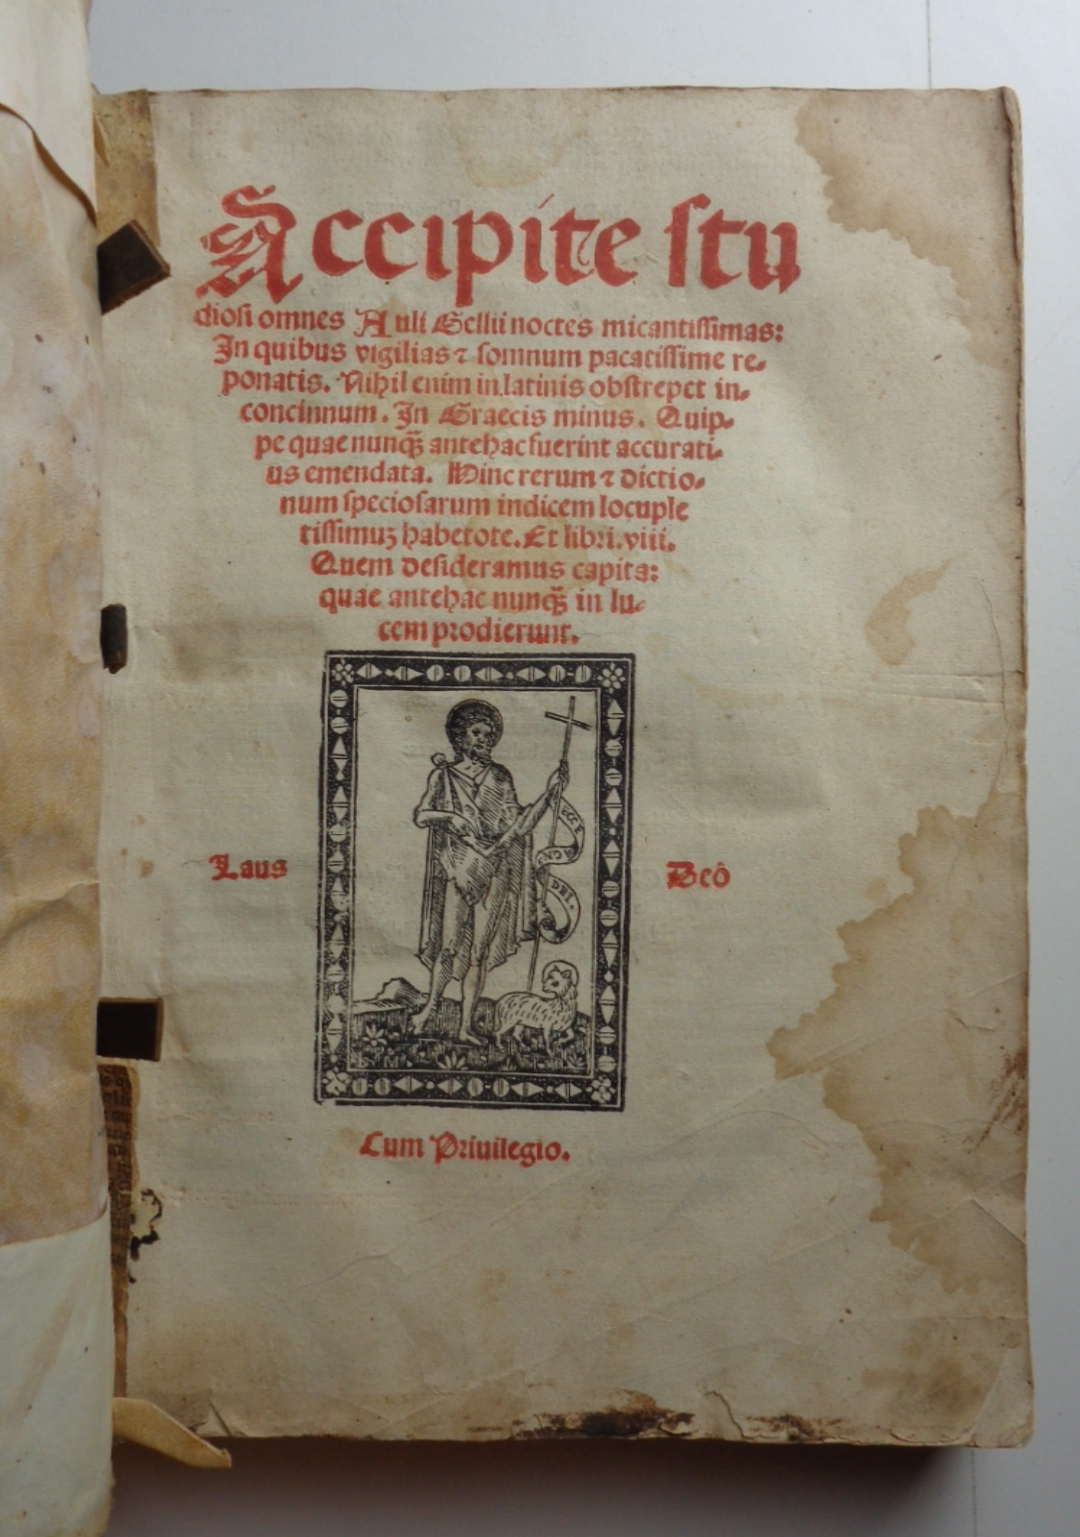 Accipite stu
diosi omnes Auli Gellii noctes micantissimas:
In quibus vigilias ⁊ somnum pacatissime re-
ponatis. Nihil enim in latinis obstrepet in-
concinnum. In Graecis minus. Quip-
pe quae nunq̃ antehac fuerint accurati-
us emendata. Hinc rerum ⁊ dictio-
num speciosarum indicem locuple
tissimuʒ habetote. Et libri. viii.
Quem desideramus capita:
quae antehac nunq̃ in lu-
cem prodierunt.
ECCE
DEI.
Laus Deo
Cum Priuilegio.